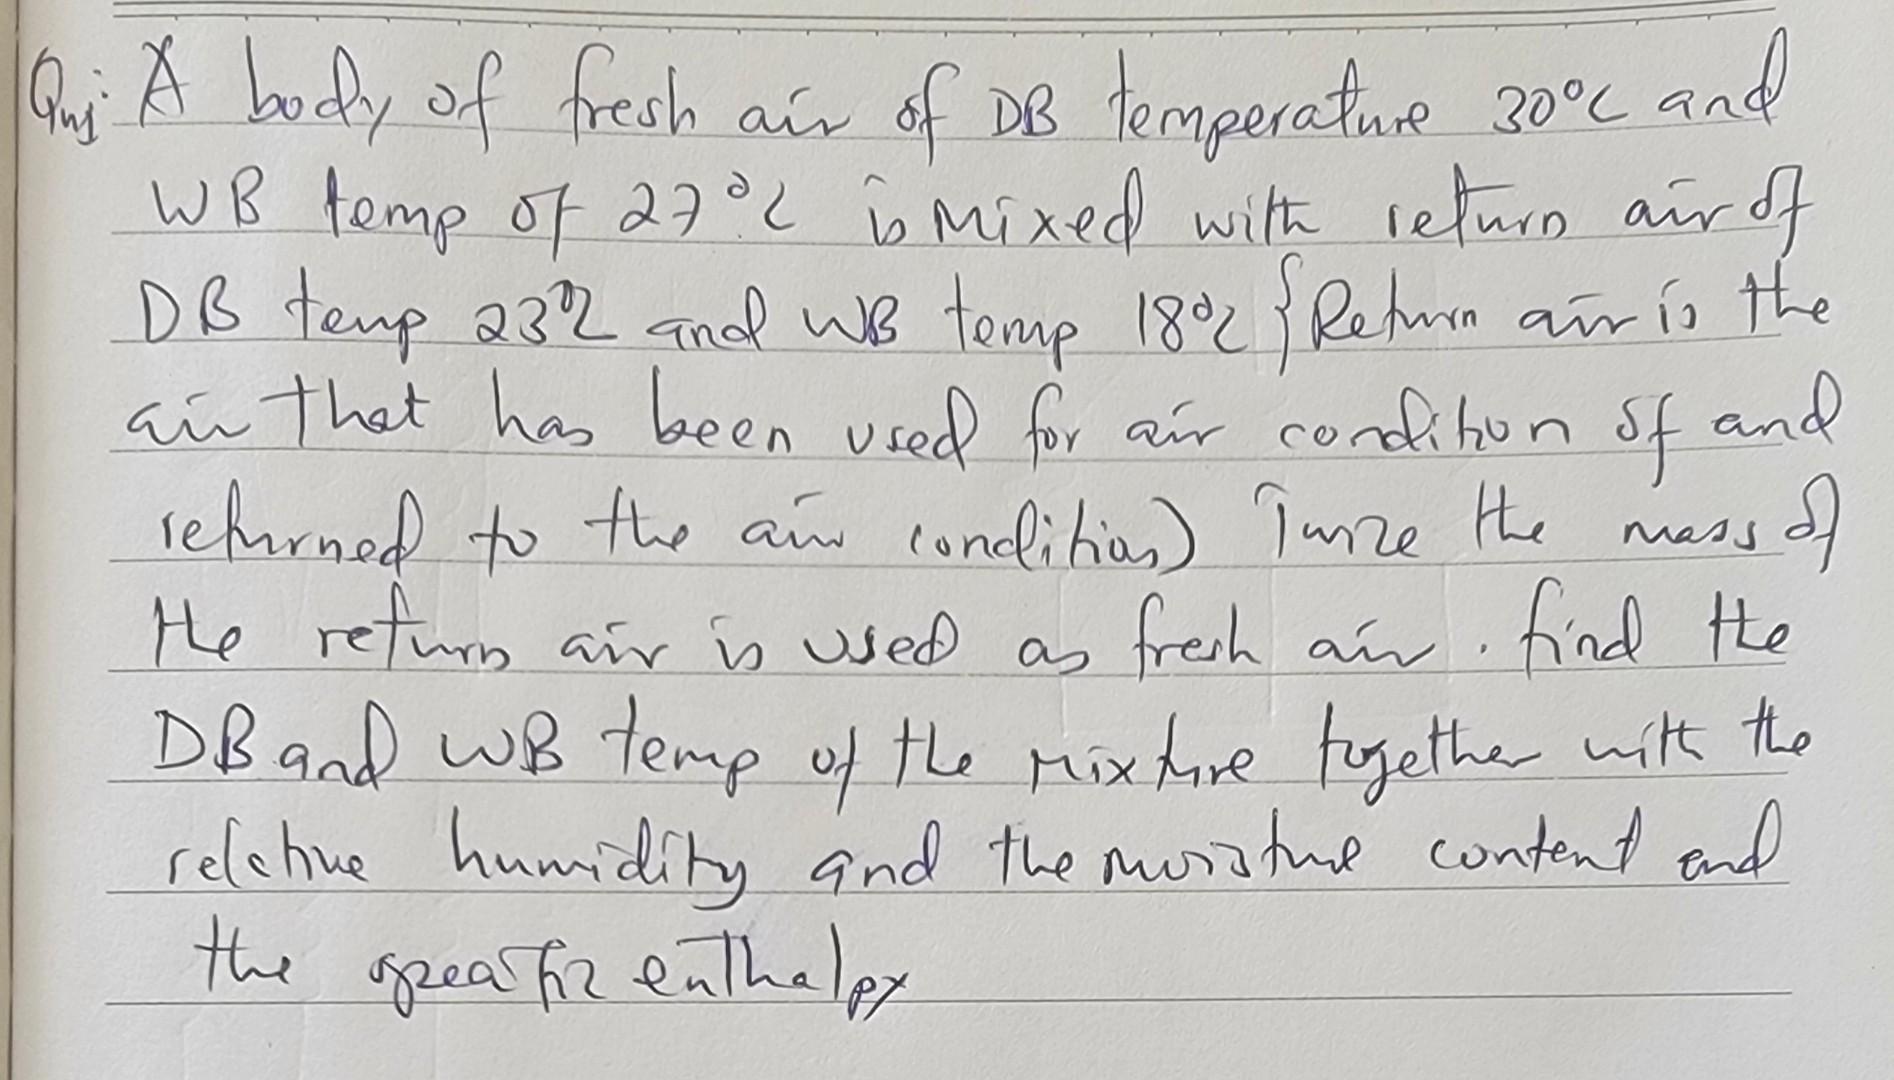 Qns: A body of fresh air of DB temperature 30°C and
WB temp of 27°C is mixed with return air of
DB temp 23°C and WB temp 18°C {Return air is the
air that has been used for air condition of and
returned to the air condition) Twice the mass of
the return air is used as fresh air. find the
DB and WB temp of the mixture together with the
relative humidity and the moisture content and
the specific enthalpy